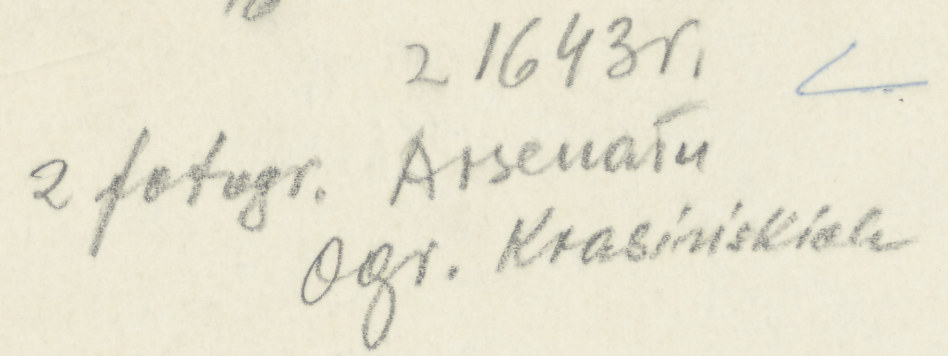 z 1643 r.
2 fotogr. Arsenału
Ogr. Krasińskich